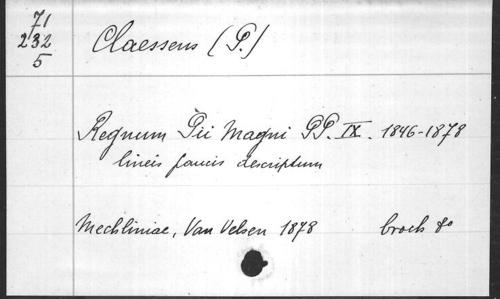 71
232
5
Claessens (P.)
Regnum Pii Magni PP. IX. 1846-1878
lineis paucis descriptum
Mechliniae, Van Velsen 1878 broch 8o